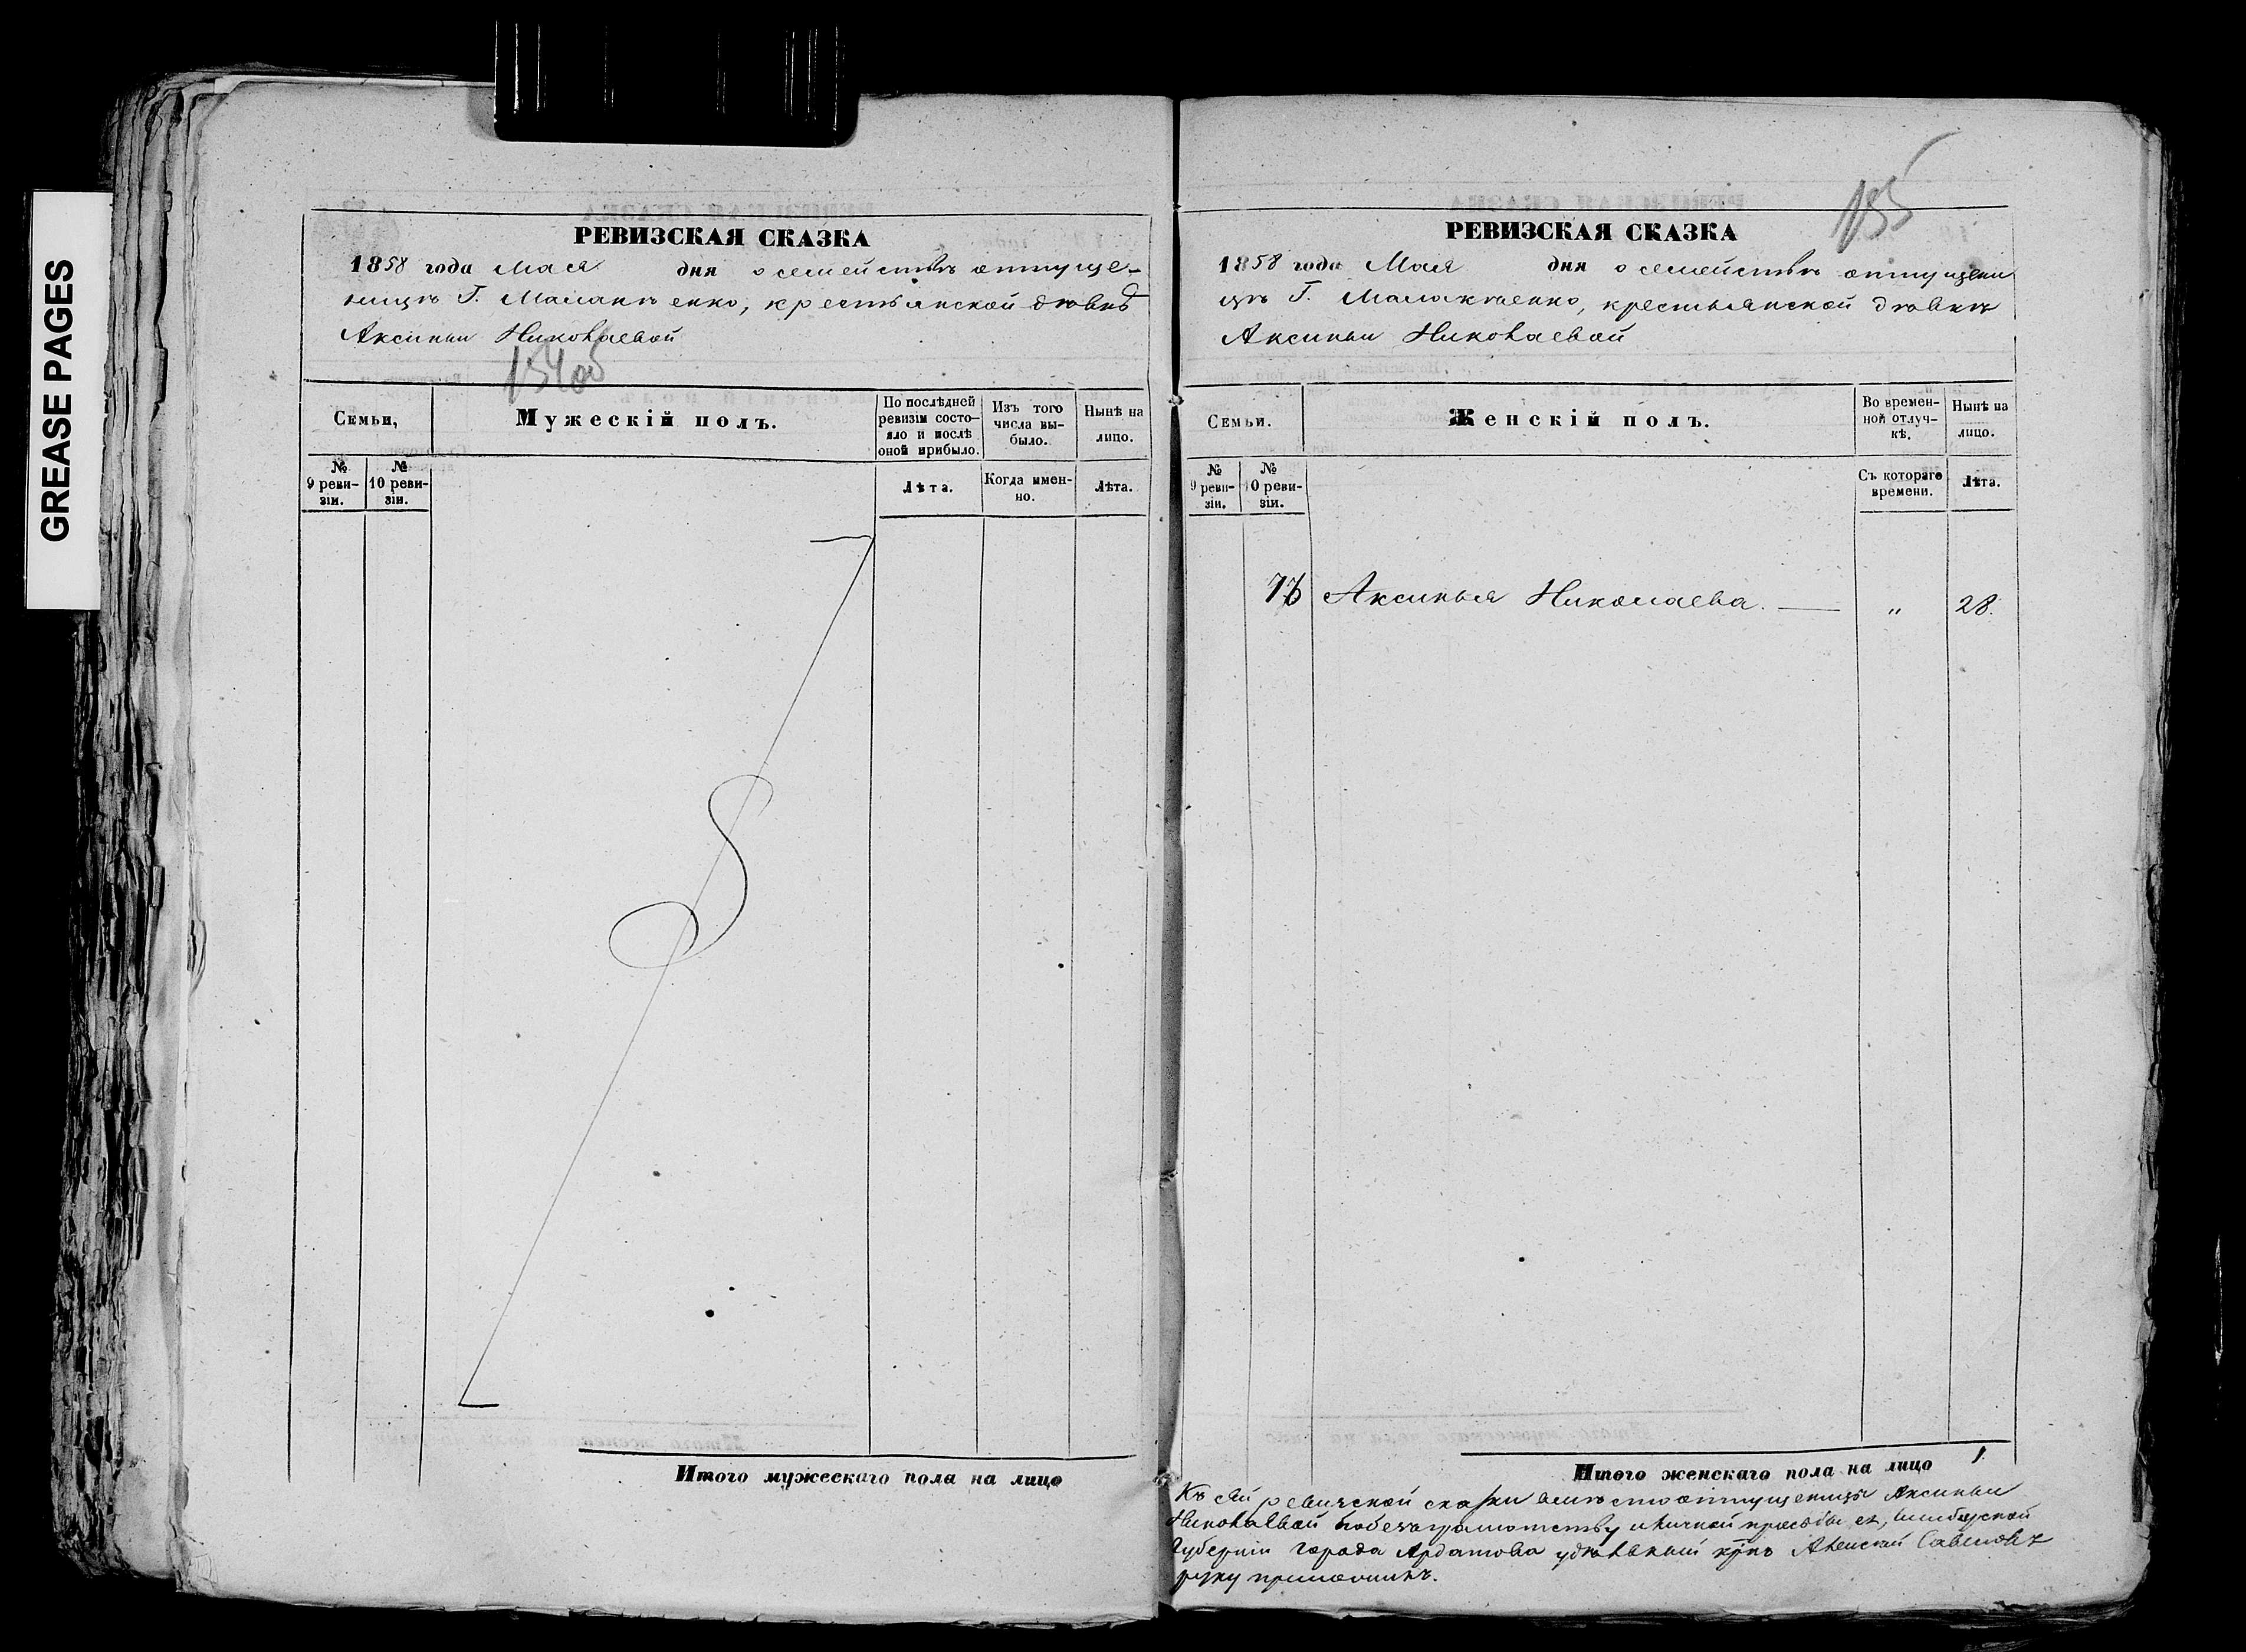 GREASE PAGES
РЕВИЗСКАЯ СКАЗКА
1858 года Мая дня о семействѣ отпуще-
ницѣ Г. крестьянской дѣвкѣ
Аксиньи Николаевой
Семьи,
Мужескій полъ.
По послѣдней ревизіи состо-
яло и послѣ оной прибыло.
Изъ того числа вы-
было.
Нынѣ на лицо.
№ 9 реви-
зіи.
№ 10 реви-
зіи.
Лѣта.
Когда имен-
но.
Лѣта.
Итого мужескаго пола на лицо
155
РЕВИЗСКАЯ СКАЗКА
1858 года Мая дня о семействѣ отпущени
цѣ Г. крестьянской дѣвкѣ
Аксиньи Николаевой
Семьи.
Женскій полъ.
Во времен-
ной отлуч-
кѣ.
Нынѣ на лицо.
№ 9 реви-
зіи.
№ 10 реви-
зіи.
Съ котораго времени.
Лѣта.
Аксинья Николаева. — „ 28.
Итого женскаго пола на лицо 1
Къ сей ревизской сказки вмѣсто отпущеницы Аксиньи
Николаевой по безграмотству и личной просьбы ея, Симбирской
Губерніи города Ардатова удѣльный Алексей
руку приложилъ.